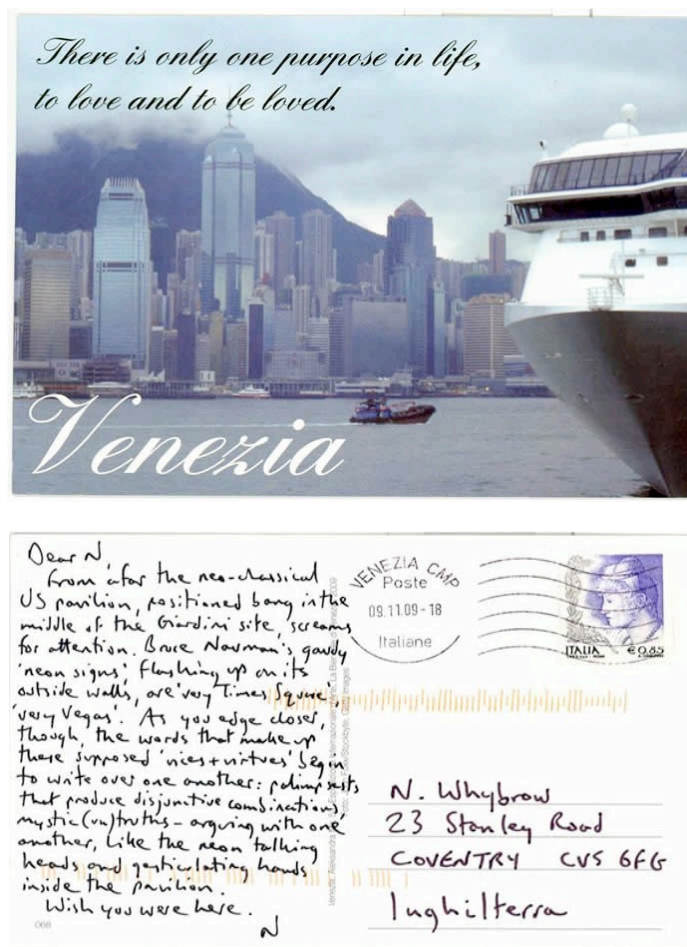 There is only one purpose in life,
to love and to be loved.
Venezia
Dear N,
From afar the neo-classical
US pavilion, positioned bang in the
middle of the Giardini site, screams
for attention. Bruce Nauman's gaudy
'neon signs' flashing up on its
outside walls, are 'very Times Square',
'very Vegas'. As you edge closer,
though, the words that make up
these supposed 'vices + virtues' begin
to write over one another: palimpsests
that produce disjunctive combinations,
mystic (un)truths - arguing with one
another, like the neon talking
heads and gesticulating hands
inside the pavilion.
Wish you were here.
N
068
VENEZIA CMP
Poste
09.11.09-18
Italiane
ITALIA
€0,85
N. Whybrow
23 Stanley Road
COVENTRY CV5 6FG
Inghilterra